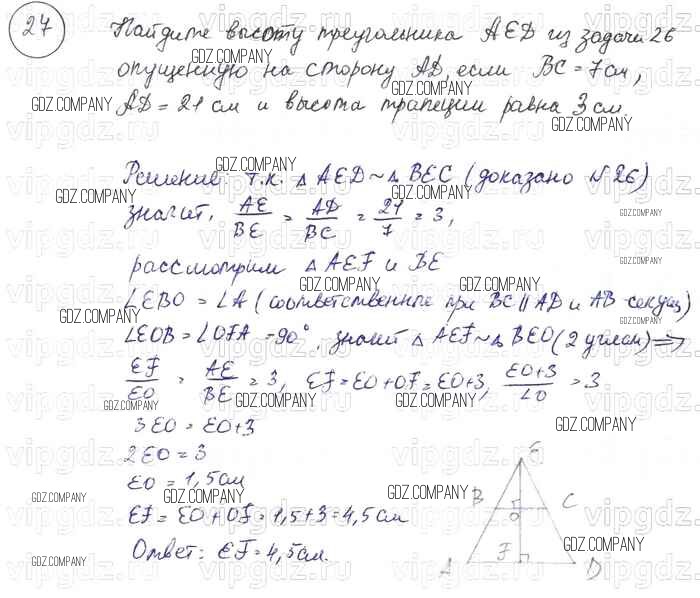 27
Найдите высоту треугольника AED из задачи 26
опущенную на сторону AD, если BC = 7 см,
AD = 21 см и высота трапеции равна 3 см.
Решение: т.к. △ AED ~ △ BEC (доказано №26)
значит, AE/BE = AD/BC = 27/7 = 3,
рассмотрим △ AEF и BE
∠EBO = ∠A (соответственные при BC || AD и AB секущ)
∠EOB = ∠OFA = 90°, значит △ AEF ~ △ BEO (2 углам) ⇒
EF/EO = AE/BE = 3, EF = EO + OF = EO+3, EO+3/EO = 3
3EO = EO+3
2EO = 3
EO = 1,5см
EF = EO + OF = 1,5+3 = 4,5 см
Ответ: EF = 4,5см.
E
B O C
A F D
GDZ.COMPANY
vipgdz.ru